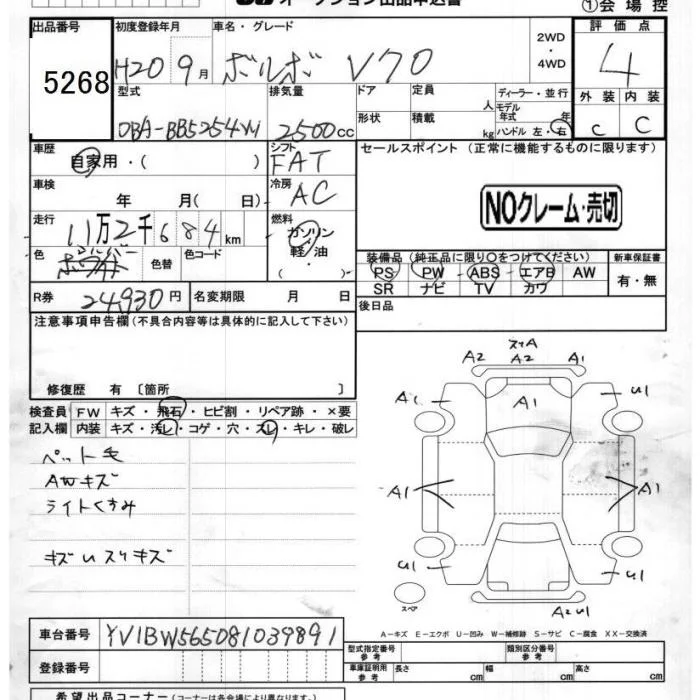 オークション出品申込書
①会場控
出品番号 5268
初度登録年月 H20 9月
車名・グレード ボルボ V70
2WD・4WD
評価点 4
型式 DBA-BB5254W
排気量 2500cc
ドア 形状
定員 人 積載 kg
ディーラー・並行
モデル年式 年
ハンドル 左・右
外装 C 内装 C
車歴 自家用・( )
シフト FAT
セールスポイント (正常に機能するものに限ります)
NOクレーム・売切
車検 年 月(日)
冷房 AC
走行 11万2千684km
燃料 ガソリン・軽油 ( )
色 シルバー 色替 色コード
装備品(純正品に限り○をつけてください)
PS PW ABS エアB AW
SR ナビ TV カワ
新車保証書 有・無
R券 24,930円 名変期限 月 日
後日品
注意事項申告欄(不具合内容等は具体的に記入して下さい)
修復歴 有〔箇所 〕
検査員 FW キズ・飛石・ヒビ割・リペア跡・×要
記入欄 内装 キズ・汚レ・コゲ・穴・スレ・キレ・破レ
ペット毛
AWキズ
ライトくすみ
キズUスリキズ
スリA
A2 A2 A1
A1 A1 U1
A1 A1
U1 U1
A2 U1
スペア
A-キズ E-エクボ U-凹み W-補修跡 S-サビ C-腐食 XX-交換済
車台番号 YV1BW565081039891
登録番号
型式指定番号 参考 類別区分番号 参考
車庫証明用 参考 長さ cm 幅 cm 高さ cm
希望出品コーナー(コーナーは各会場により異なります。)